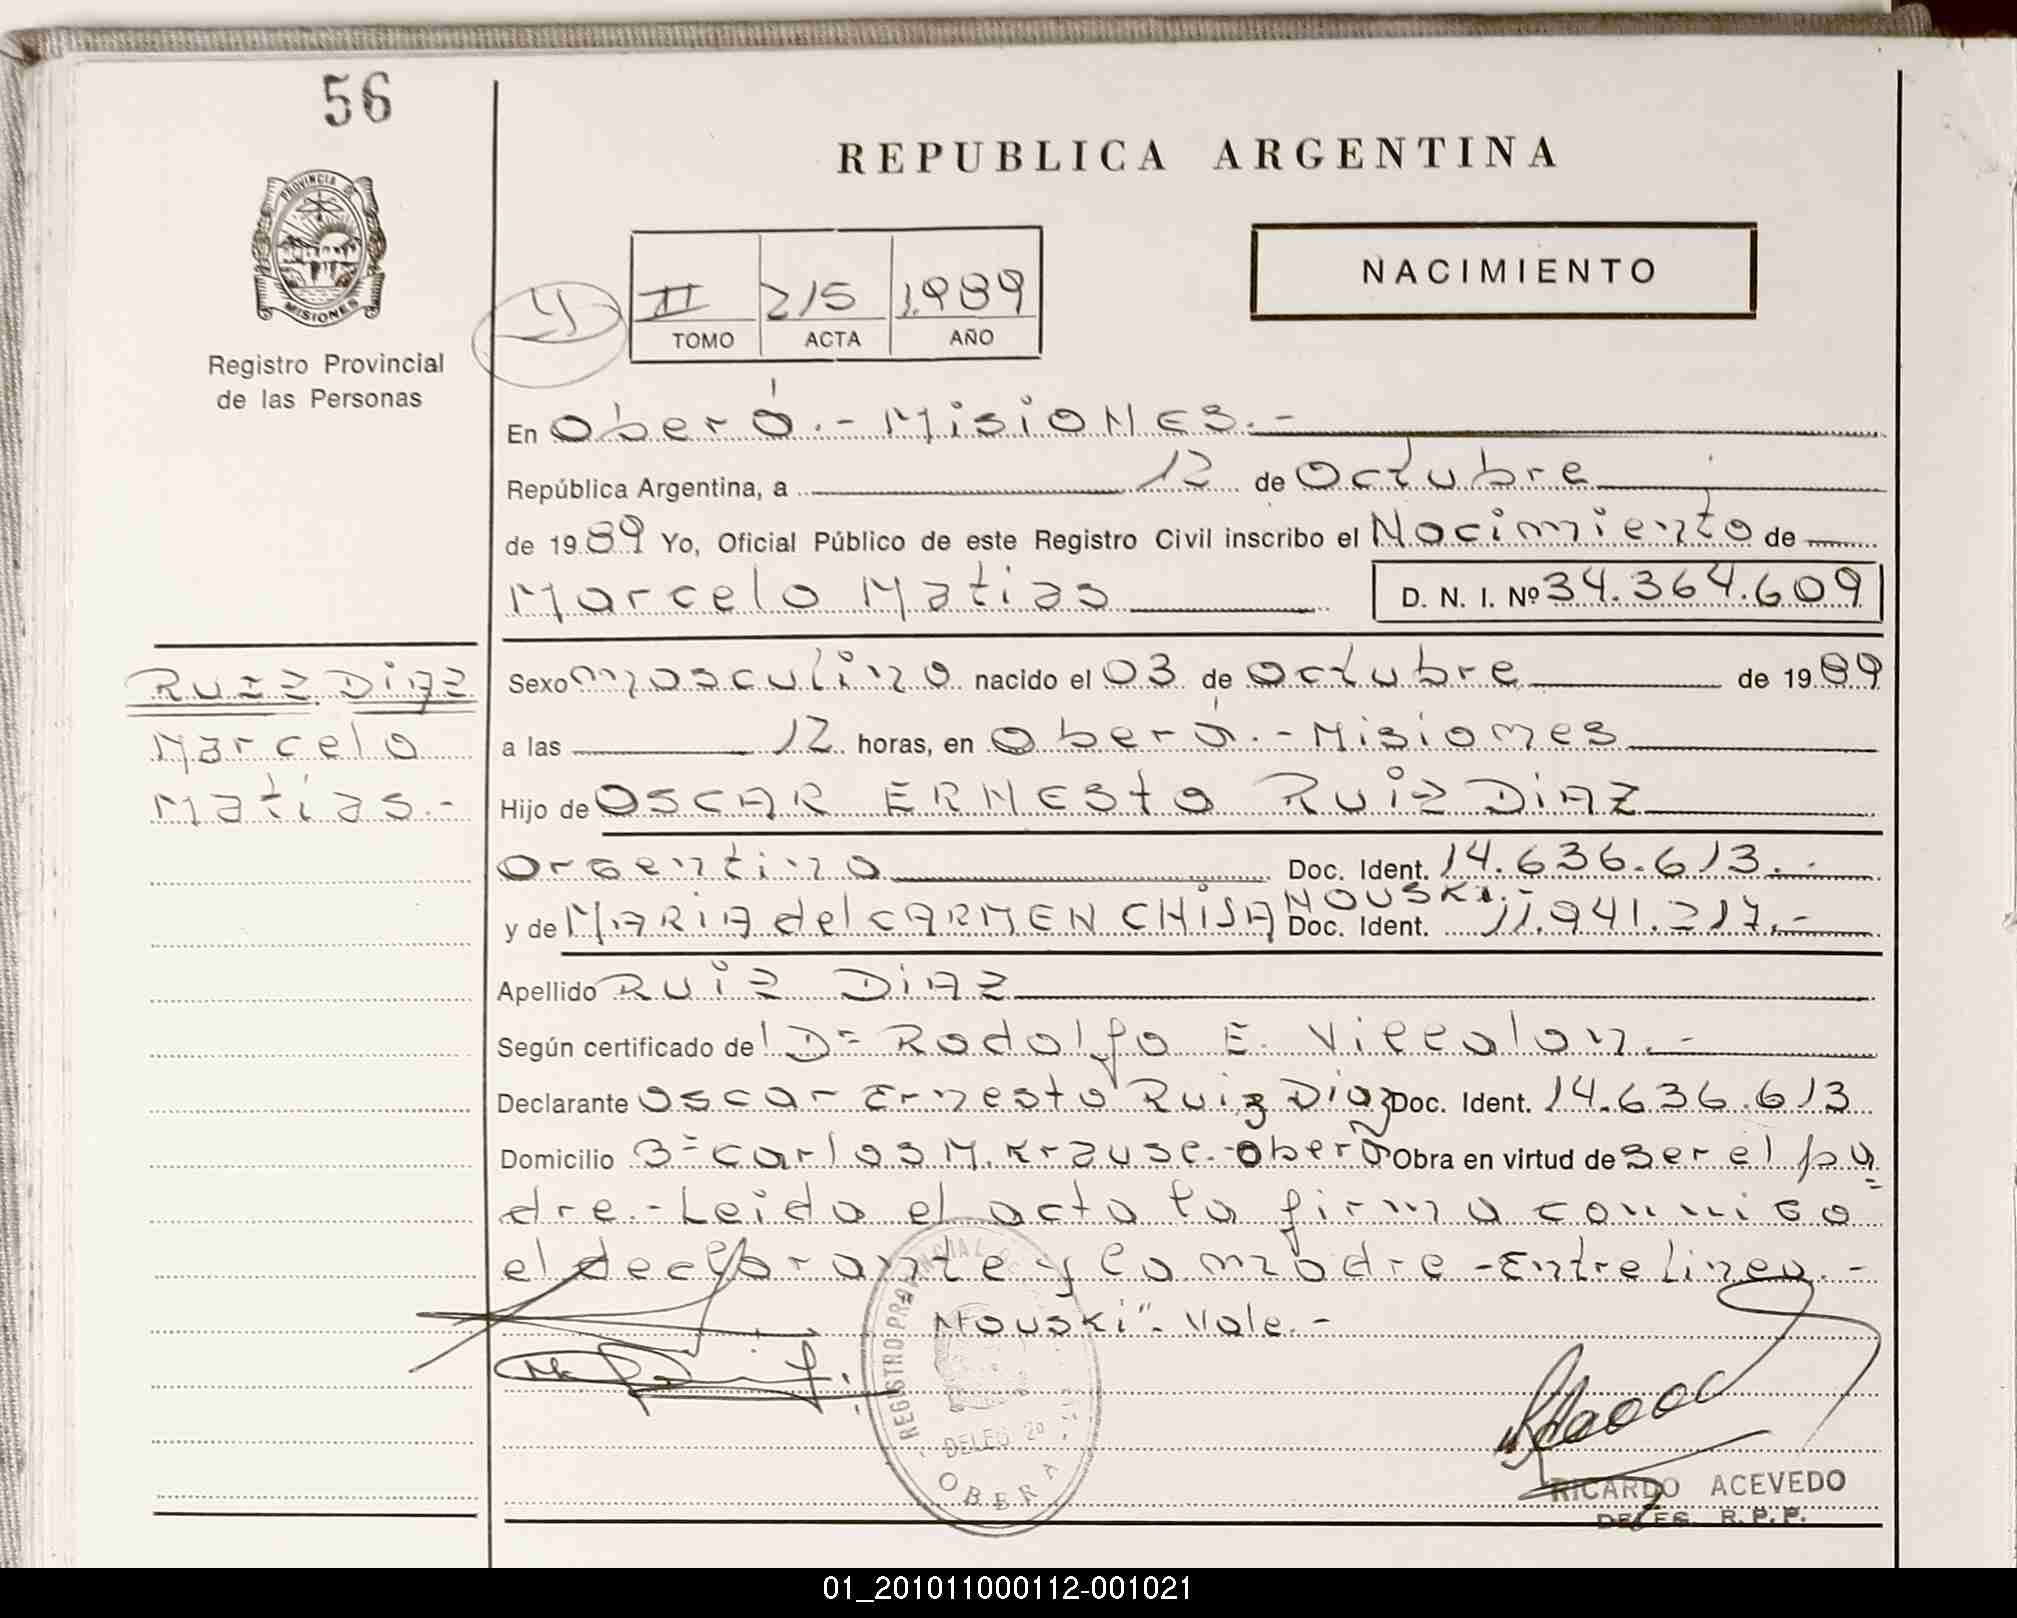 56
REPUBLICA ARGENTINA
PROVINCIA DE
MISIONES
Registro Provincial
de las Personas
NACIMIENTO
II 215 1.989
TOMO ACTA AÑO
En Oberá.- Misiones.-
República Argentina, a 12 de Octubre
de 1989 Yo, Oficial Público de este Registro Civil inscribo el Nacimiento de
Marcelo Matias D. N. I. Nº 34.364.609
Ruiz Diaz
Marcelo
Matias.-
Sexo masculino nacido el 03 de Octubre de 1989
a las 12 horas, en Oberá.- Misiones
Hijo de OSCAR ERNESTO RUIZ DIAZ
argentino Doc. Ident. 14.636.613.-
NOUSKI.-
y de MARIA del CARMEN CHISA Doc. Ident. 11.941.217.-
Apellido RUIZ DIAZ
Según certificado del D= Rodolfo E. Villalon.-
Declarante Oscar Ernesto Ruiz Diaz Doc. Ident. 14.636.613
Domicilio B= Carlos M. Krause.- Oberá Obra en virtud de ser el pa
dre.- Leida el acta la firma conmigo
el declarante y la madre - Entrelinea.-
Nouski".- Vale.-
REGISTRO PROVINCIAL
DELEG. 2º
OBERA
RICARDO ACEVEDO
DELEG. R.P.P.
01_201011000112-001021